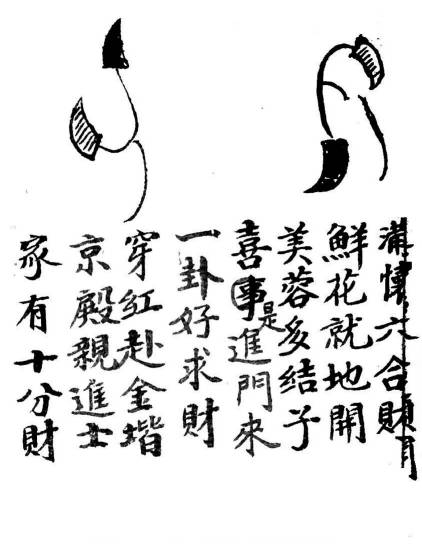 滿懷六合財門
鮮花就地開
美蓉多结子
喜事是進門來
一卦好求財
穿紅赴金堦
京殿親進士
家有十分財